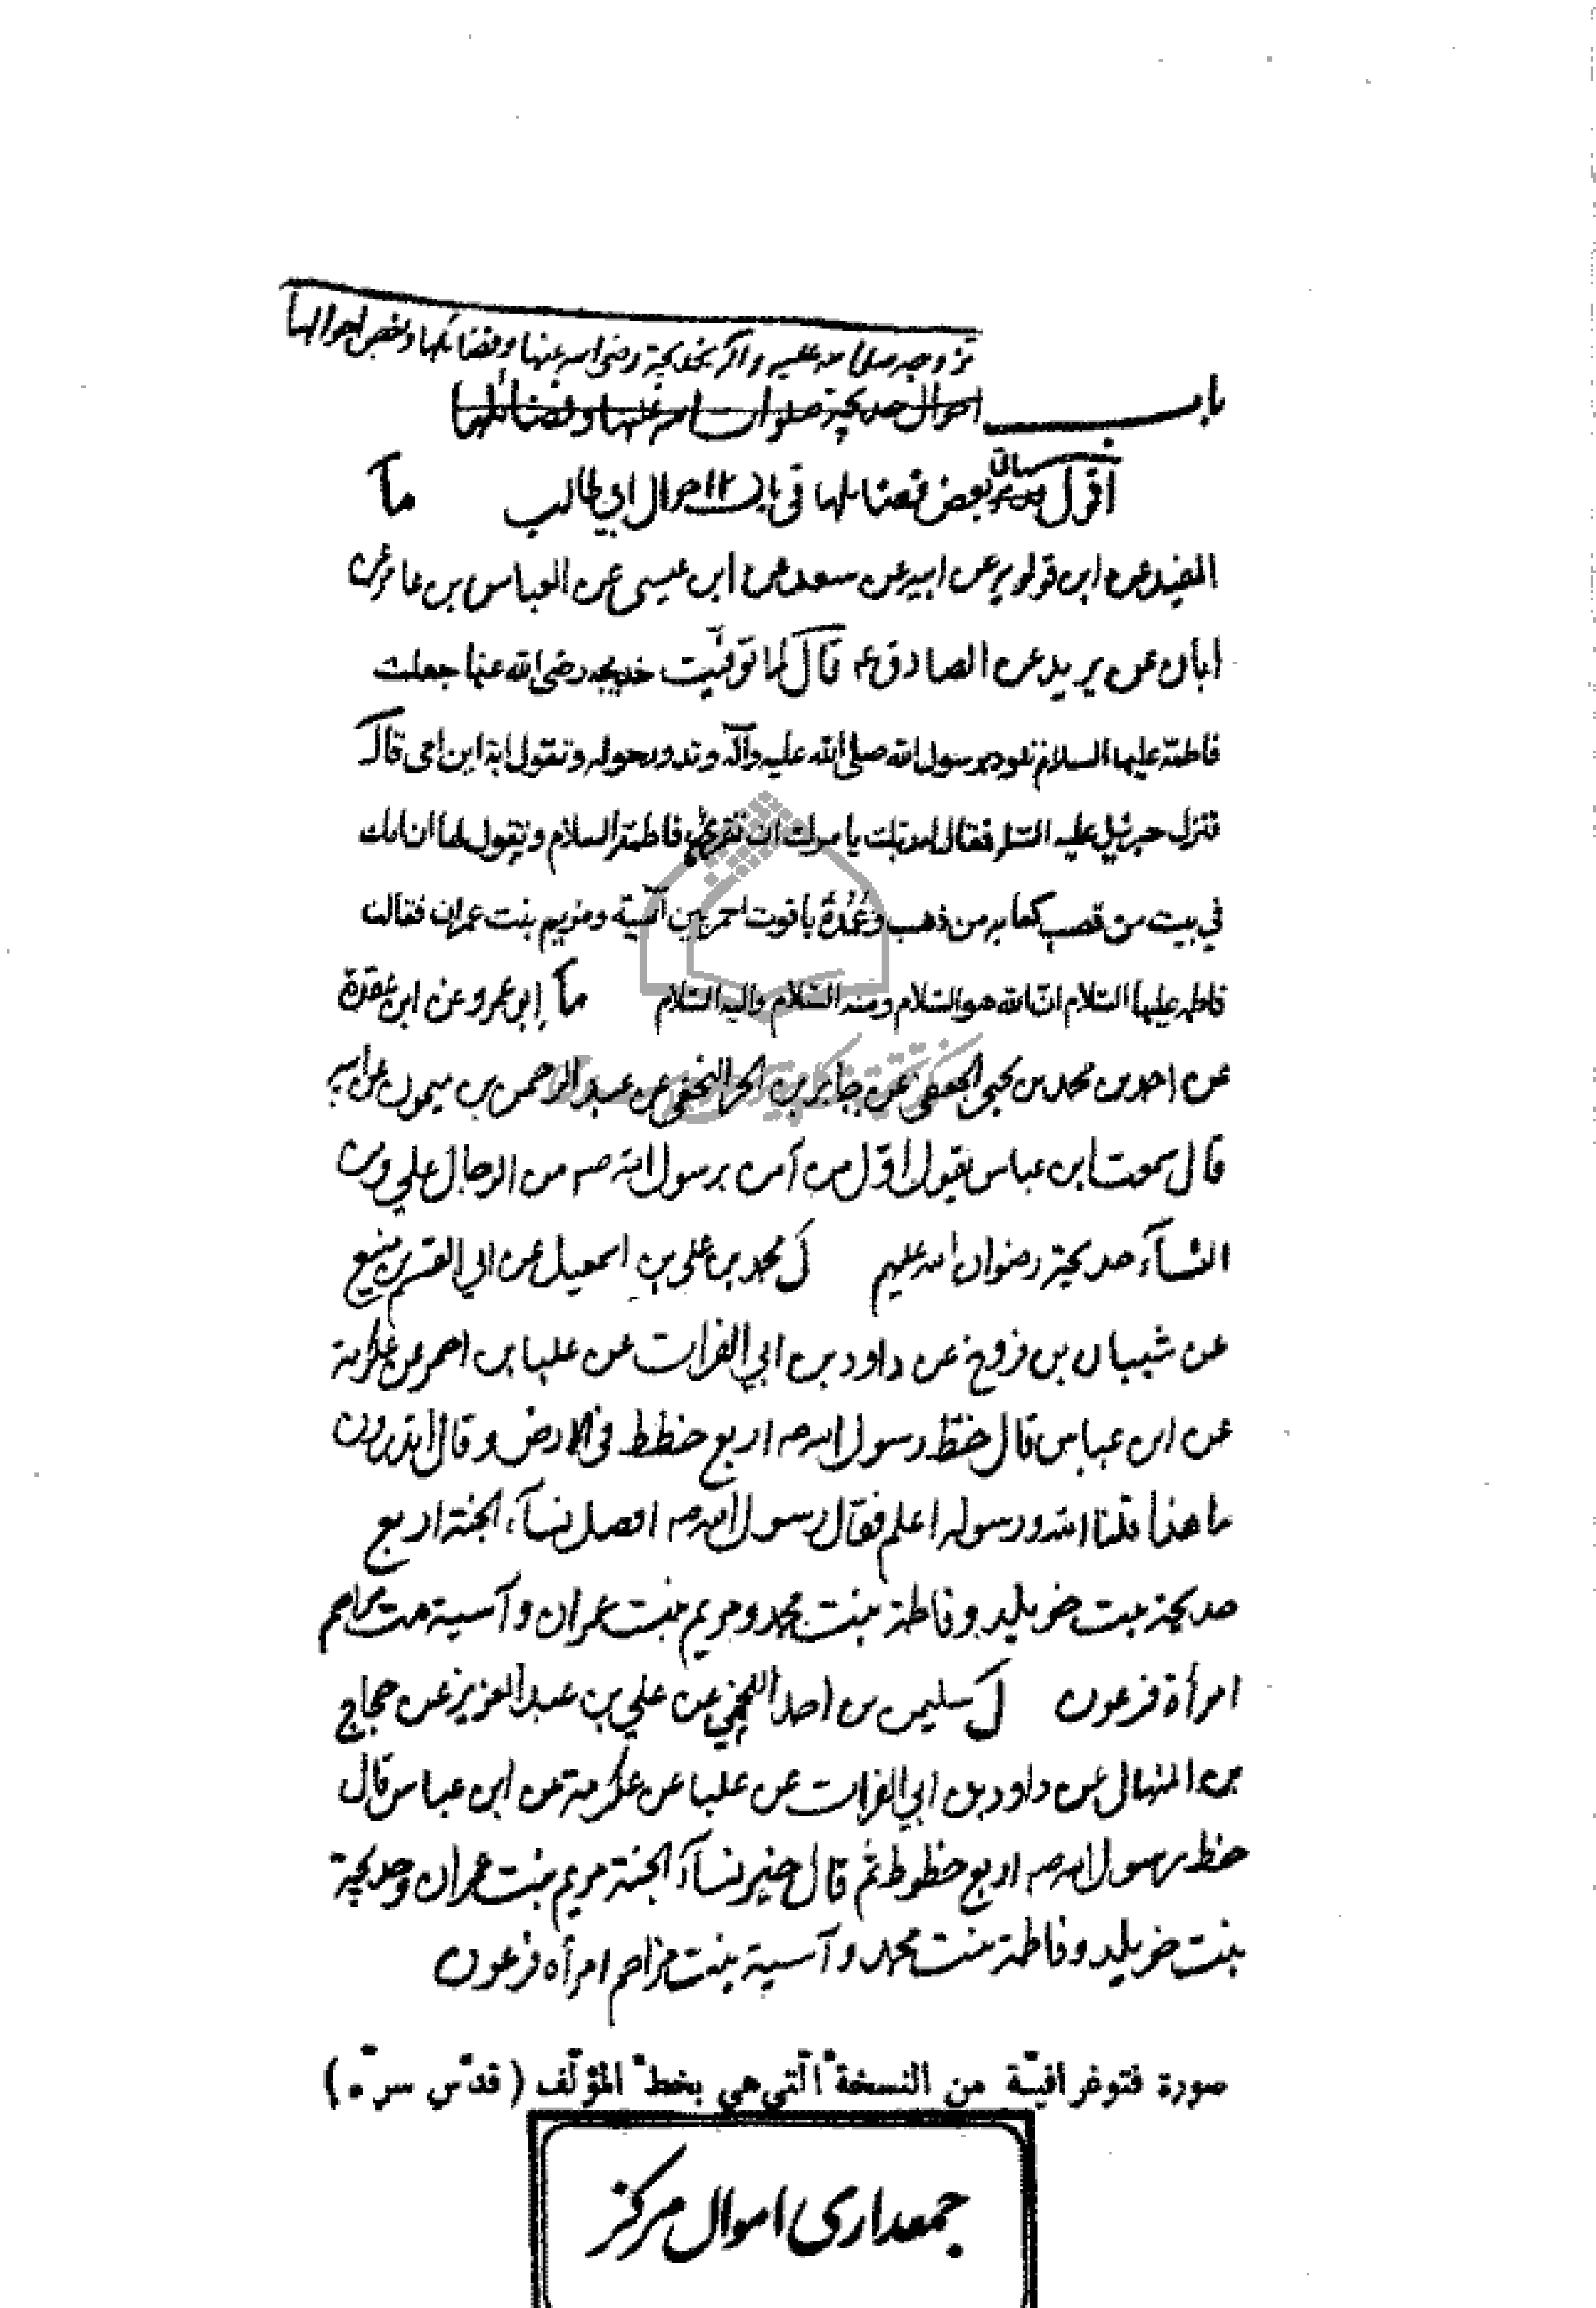 تزوجه صلى الله عليه وآله بخديجة رضي الله عنها وفضائلها وبعض احوالها
باب احوال خديجة صلوات الله عليها وفضائلها
اقول سيأتي بعض فضائلها في باب احوال ابي طالب ما
المفيد عن ابن قولويه عن ابيه عن سعد عن ابن عيسى عن العباس بن عامر عن
ابان عن بريد عن الصادق ع قال لما توفّيت خديجه رضي الله عنها جعلت
فاطمة عليها السلام تلوذ برسول الله صلى الله عليه وآله وتدور حوله وتقول ابة اين امي قال
فنزل جبرئيل عليه السلم فقال له ربك يامرك ان تقرئ فاطمة السلام وتقول لها ان امك
في بيت من قصب كعابه من ذهب وعُمُدُهُ ياقوت احمر بين آسية ومريم بنت عمران فقالت
فاطمه عليها السّلام انّ الله هو السّلام ومنه السّلام واليه السّلام ما ابو عمرو عن ابن عقدة
عن احمد بن محمد بن يحيى الجعفي عن جابر بن الحر النخعي عن عبد الرحمن بن ميمون عن ابيه
قال سمعت ابن عباس يقول اوّل من آمن برسول الله ص من الرجال علي ومن
النساء خديجة رضوان الله عليهم ل محمد بن علي بن اسمعيل عن ابي القسم بن منيع
عن شيبان بن فروخ عن داود بن ابي الفرات عن علبا بن احمر عن عكرمة
عن ابن عباس قال خطّ رسول الله ص اربع خطط في الارض وقال اتدرون
ما هذا قلنا الله ورسوله اعلم فقال رسول الله ص افضل نساء الجنة اربع
خديجة بنت خويلد وفاطمة بنت محمد ومريم بنت عمران وآسية بنت مزاحم
امرأة فرعون ل سليمن بن احمد اللخمي عن علي بن عبد العزيز عن حجاج
بن المنهال عن داود بن ابي الفرات عن علبا عن عكرمة عن ابن عباس قال
خط رسول الله ص اربع خطوط ثم قال خير نساء الجنة مريم بنت عمران وخديجة
بنت خويلد وفاطمة بنت محمد وآسية بنت مزاحم امرأة فرعون
صورة فتوغرافيّة من النسخة الّتي هي بخطّ المؤلّف (قدّس سرّه)
جمعداری اموال مرکز